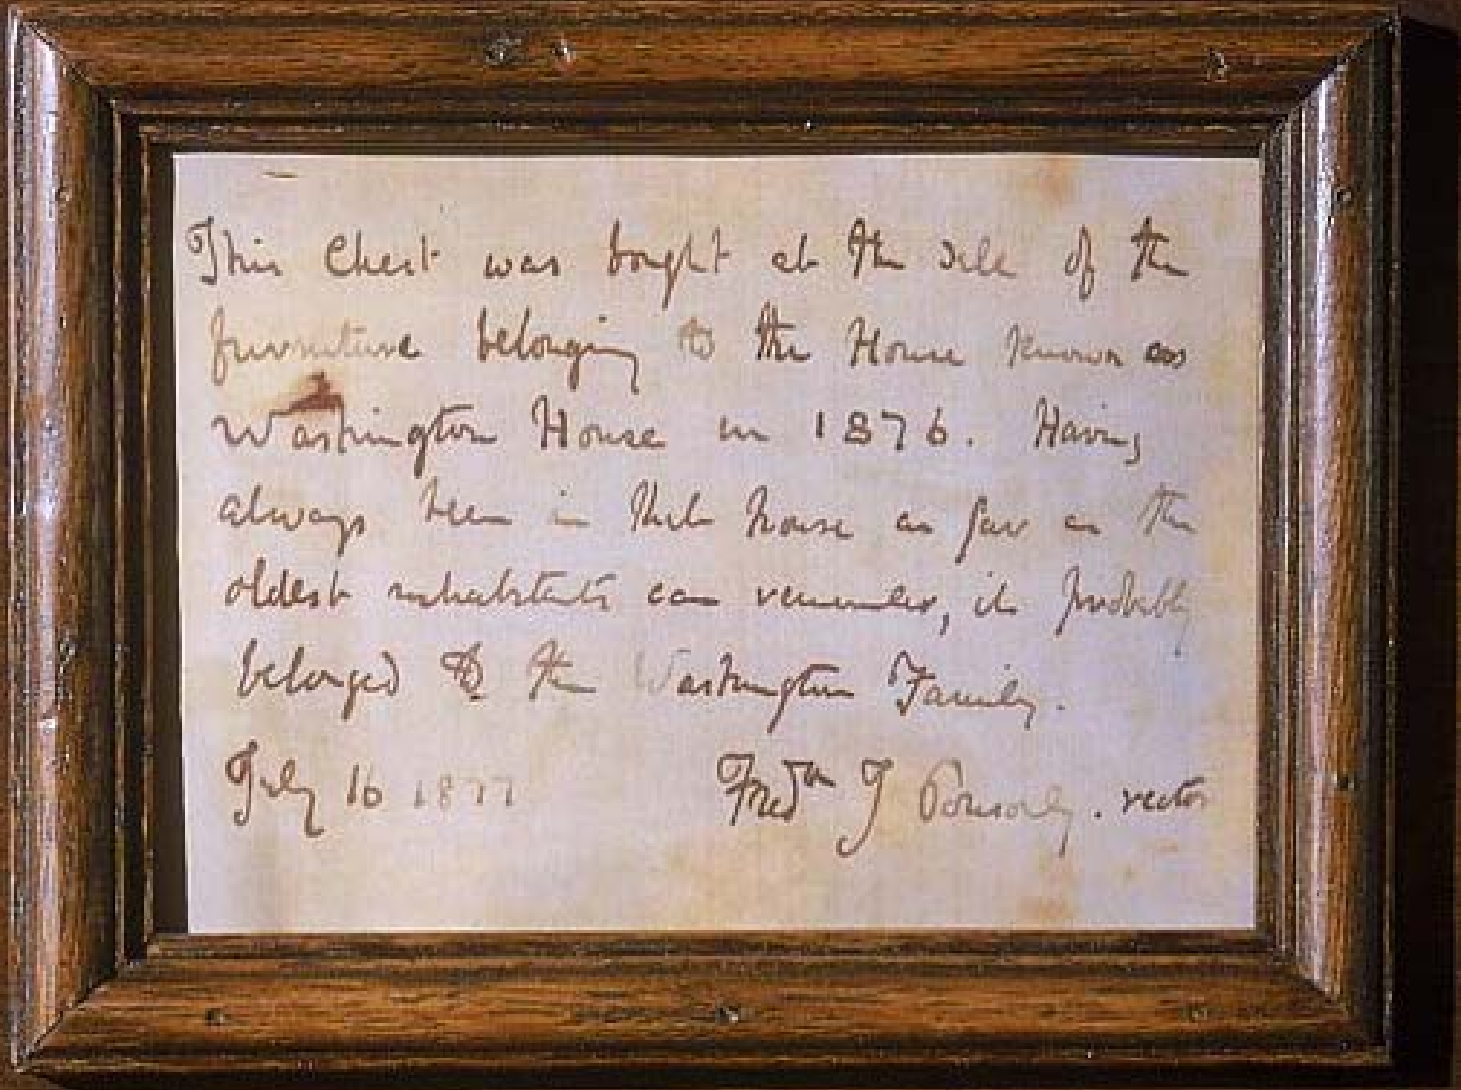 This Chest was bought at the sale of the
furniture belonging to the House known as
Washington House in 1876. Having
always been in that house as far as the
oldest inhabitants can remember, it probably
belonged to the Washington Family.
July 16 1877 Fred^k J Ponsonby. rector